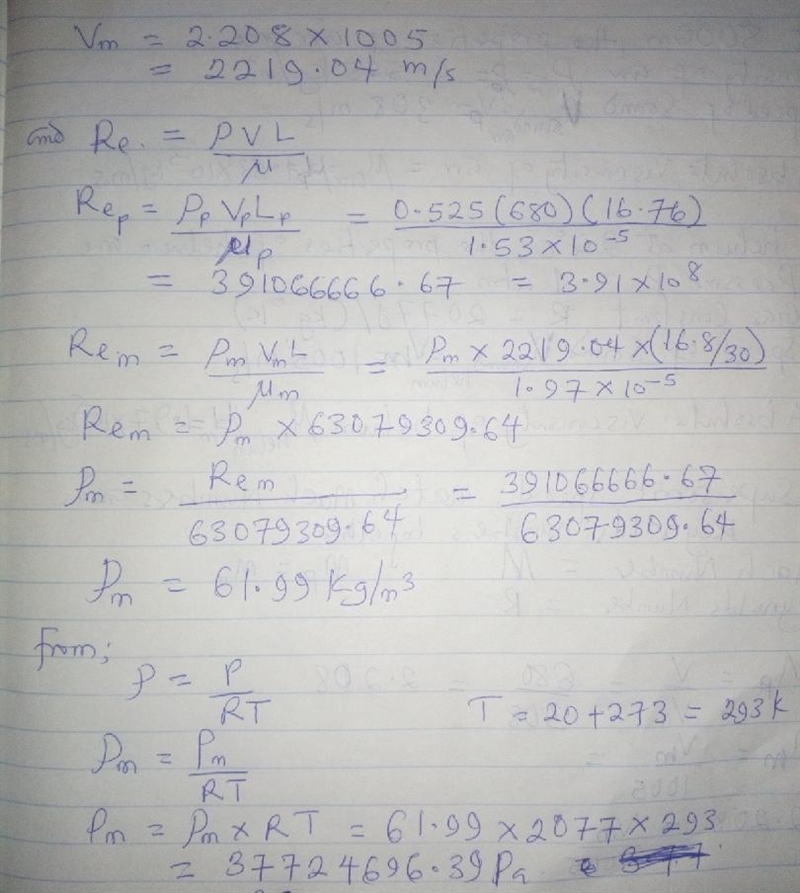 Vm = 2.208 × 1005
= 2219.04 m/s
and Re. = ρVL/μ
Rep = ρp Vp Lp/μp = 0.525(680)(16.76)/1.53×10⁻⁵
= 391066666.67 = 3.91×10⁸
Rem = ρm Vm L/μm = ρm × 2219.04 × (16.8/30)/1.97×10⁻⁵
Rem = ρm × 63079309.64
ρm = Rem/63079309.64 = 391066666.67/63079309.64
ρm = 61.99 kg/m³
from;
ρ = P/RT T = 20+273 = 293k
ρm = Pm/RT
Pm = ρm × RT = 61.99 × 2077 × 293
= 37724696.39 Pa